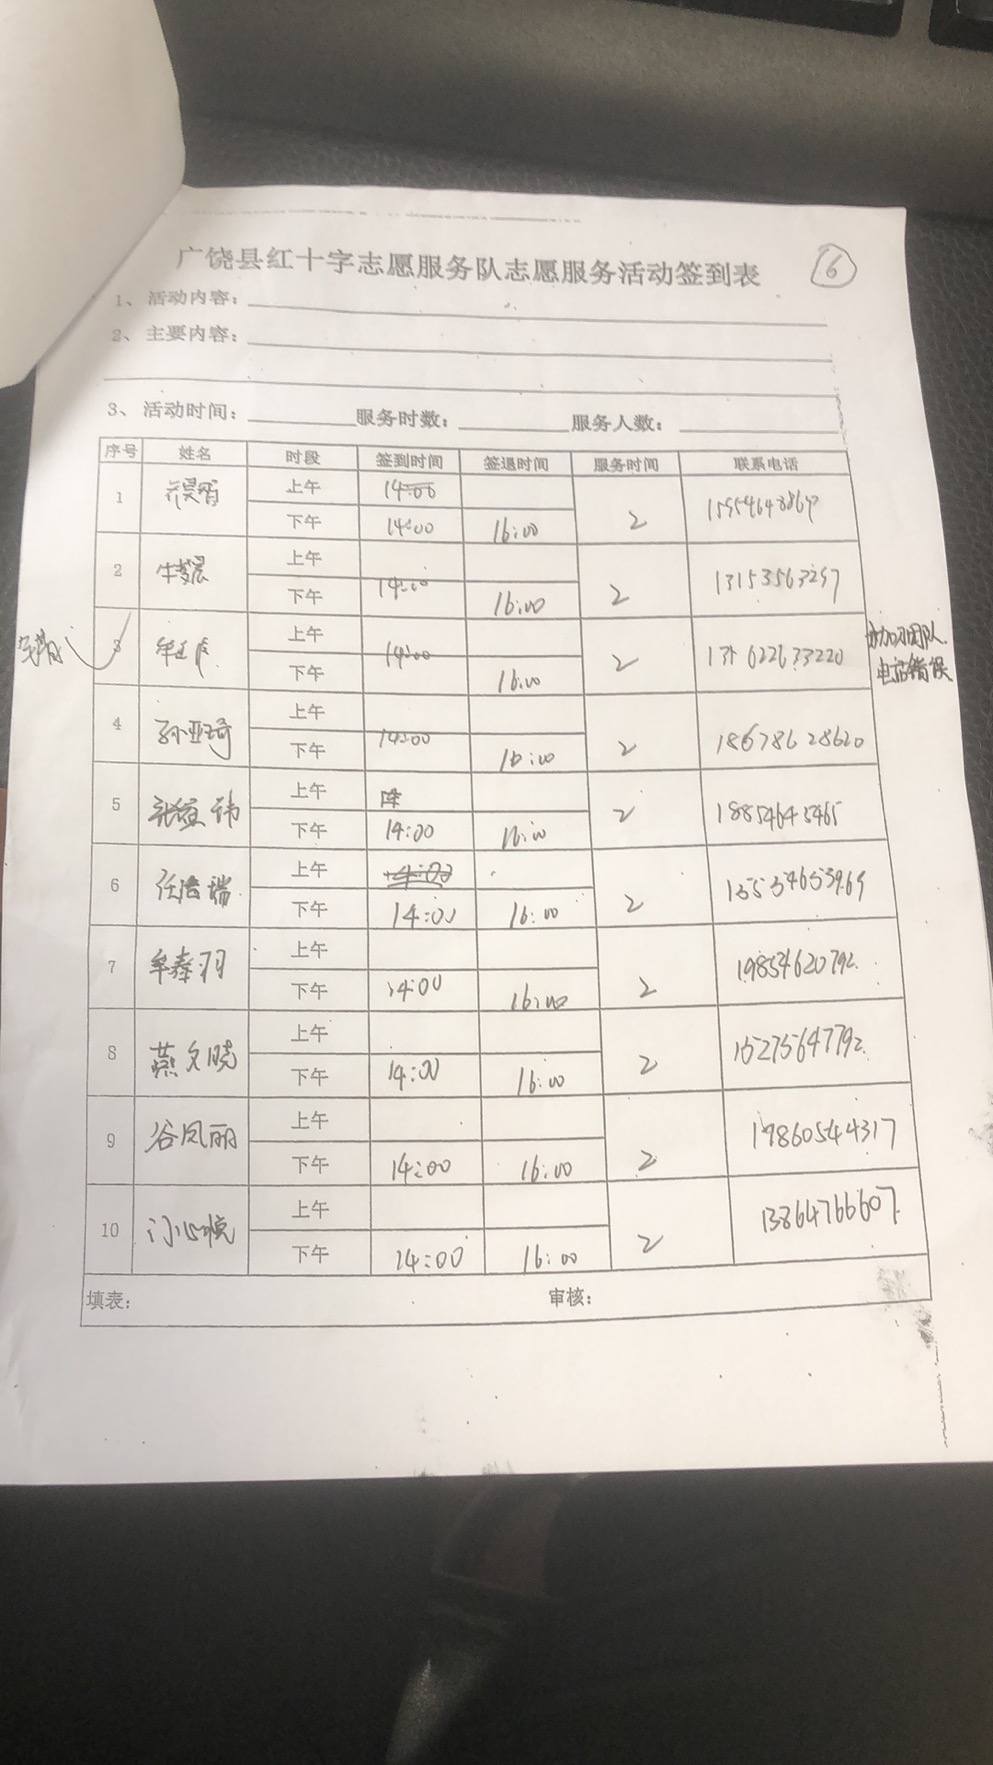 广饶县红十字志愿服务队志愿服务活动签到表
6
1、活动内容：
2、主要内容：
3、活动时间： 服务时数： 服务人数：
序号 姓名 时段 签到时间 签退时间 服务时间 联系电话
1 上午 14:00
下午 14:00 16:00 2
2 上午
下午 14:00 16:00 2 13153563297
3 上午
14:00 2 电话错误
下午 16:00
4 孙亚琦 上午
下午 14:00 16:00 2 18678628620
5 上午
下午 14:00 16:00 2 18854643465
6 任浩瑞 上午 14:00
下午 14:00 16:00 2
7 牟春羽 上午
下午 14:00 16:00 2 19854620792
8 燕文晓 上午
下午 14:00 16:00 2 15275647792
9 谷凤丽 上午
下午 14:00 16:00 2 19860544317
10 上午
下午 14:00 16:00 2 13864766607
填表： 审核：